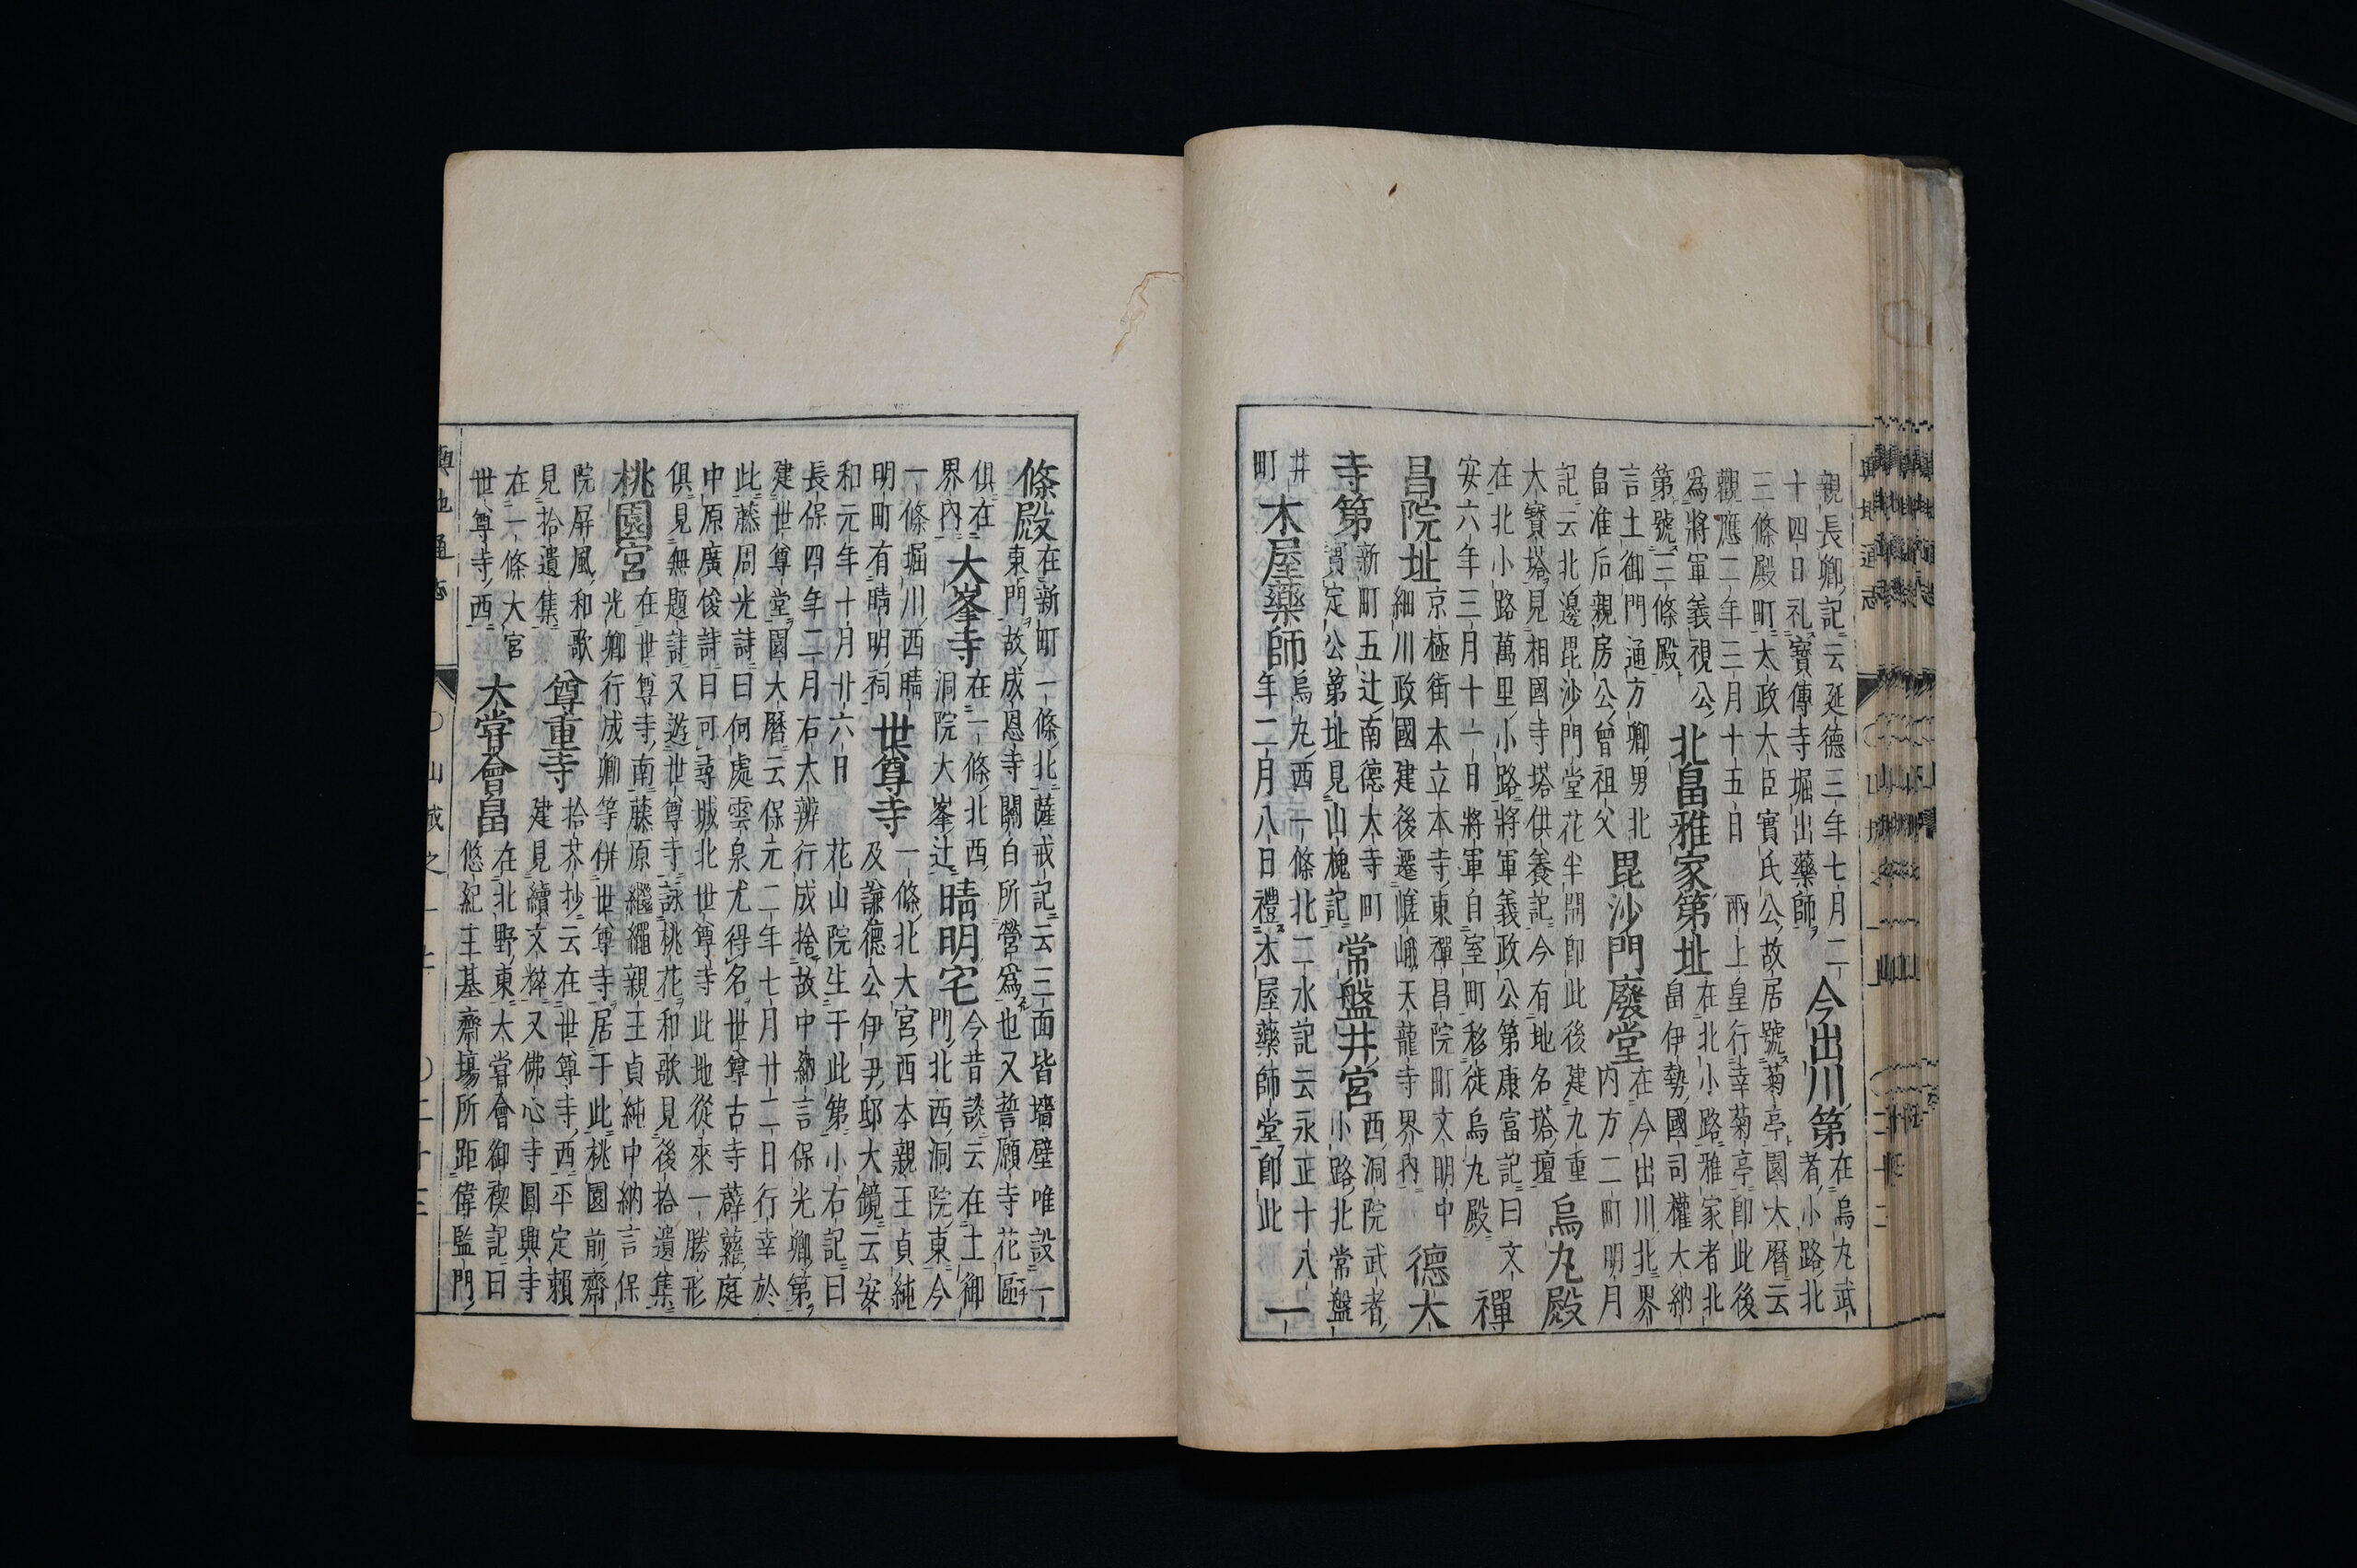 親長卿記云延德三年七月二
十四日礼寶傳寺堀出藥師
今出川第
在烏丸武
者小路北
三條殿町太政大臣實氏公故居號菊亭園大暦云
觀應二年三月十五日兩上皇行幸菊亭卽此後
爲將軍義視公
第號三條殿
北畠雅家第址
在北小路雅家者北
畠伊勢國司權大納
言土御門通方卿男北
畠准后親房公曾祖父
毘沙門廢堂
在今出川北界
内方二町明月
記云北邊毘沙門堂花半開卽此後建九重
大寶塔見相國寺塔供養記今有地名塔壇
烏丸殿
在北小路萬里小路將軍義政公第康富記曰文
安六年三月十一日將軍自室町移徒烏丸殿
禪
昌院址
京極街本立本寺東禪昌院町文明中
細川政國建後遷嵯峨天龍寺界内
德大
寺第
新町五辻南德大寺町
實定公第址見山槐記
常盤井宮
西洞院武者
小路北常盤
井
町
木屋藥師
烏丸西一條北二水記云永正十八
年二月八日禮木屋藥師堂卽此
一
條殿
在新町一條北薩戒記云三面皆墻壁唯設一
東門故成恩寺關白所營爲也又誓願寺花區
俱在
界内
大峯寺
在一條北西
洞院大峯辻
晴明宅
今昔談云在土御
門北西洞院東今
一條堀川西晴
明町有晴明祠
世尊寺
一條北大宮西本親王貞純
及謙德公伊尹邸大鏡云安
和元年十月廿六日花山院生于此第小右記曰
長保四年二月右大辨行成捨故中納言保光卿第
建世尊堂園大暦云保元二年七月廿二日行幸於
此藤周光詩曰何處雲泉尤得名世尊古寺薜蘿庭
中原廣俊詩曰可尋城北世尊寺此地從來一勝形
俱見無題詩又遊世尊寺詠桃花和歌見後拾遺集
桃園宮
在世尊寺南藤原繼繩親王貞純中納言保
光卿行成卿等併世尊寺居于此桃園前齋
院屏風和歌
見拾遺集
尊重寺
拾芥抄云在世尊寺西平定賴
建見續文粹又佛心寺圓興寺
在一條大宮
世尊寺西
大嘗會畠
在北野東大嘗會御禊記曰
悠紀主基齋場所距偉監門
輿地通志
山城之一上
二十三